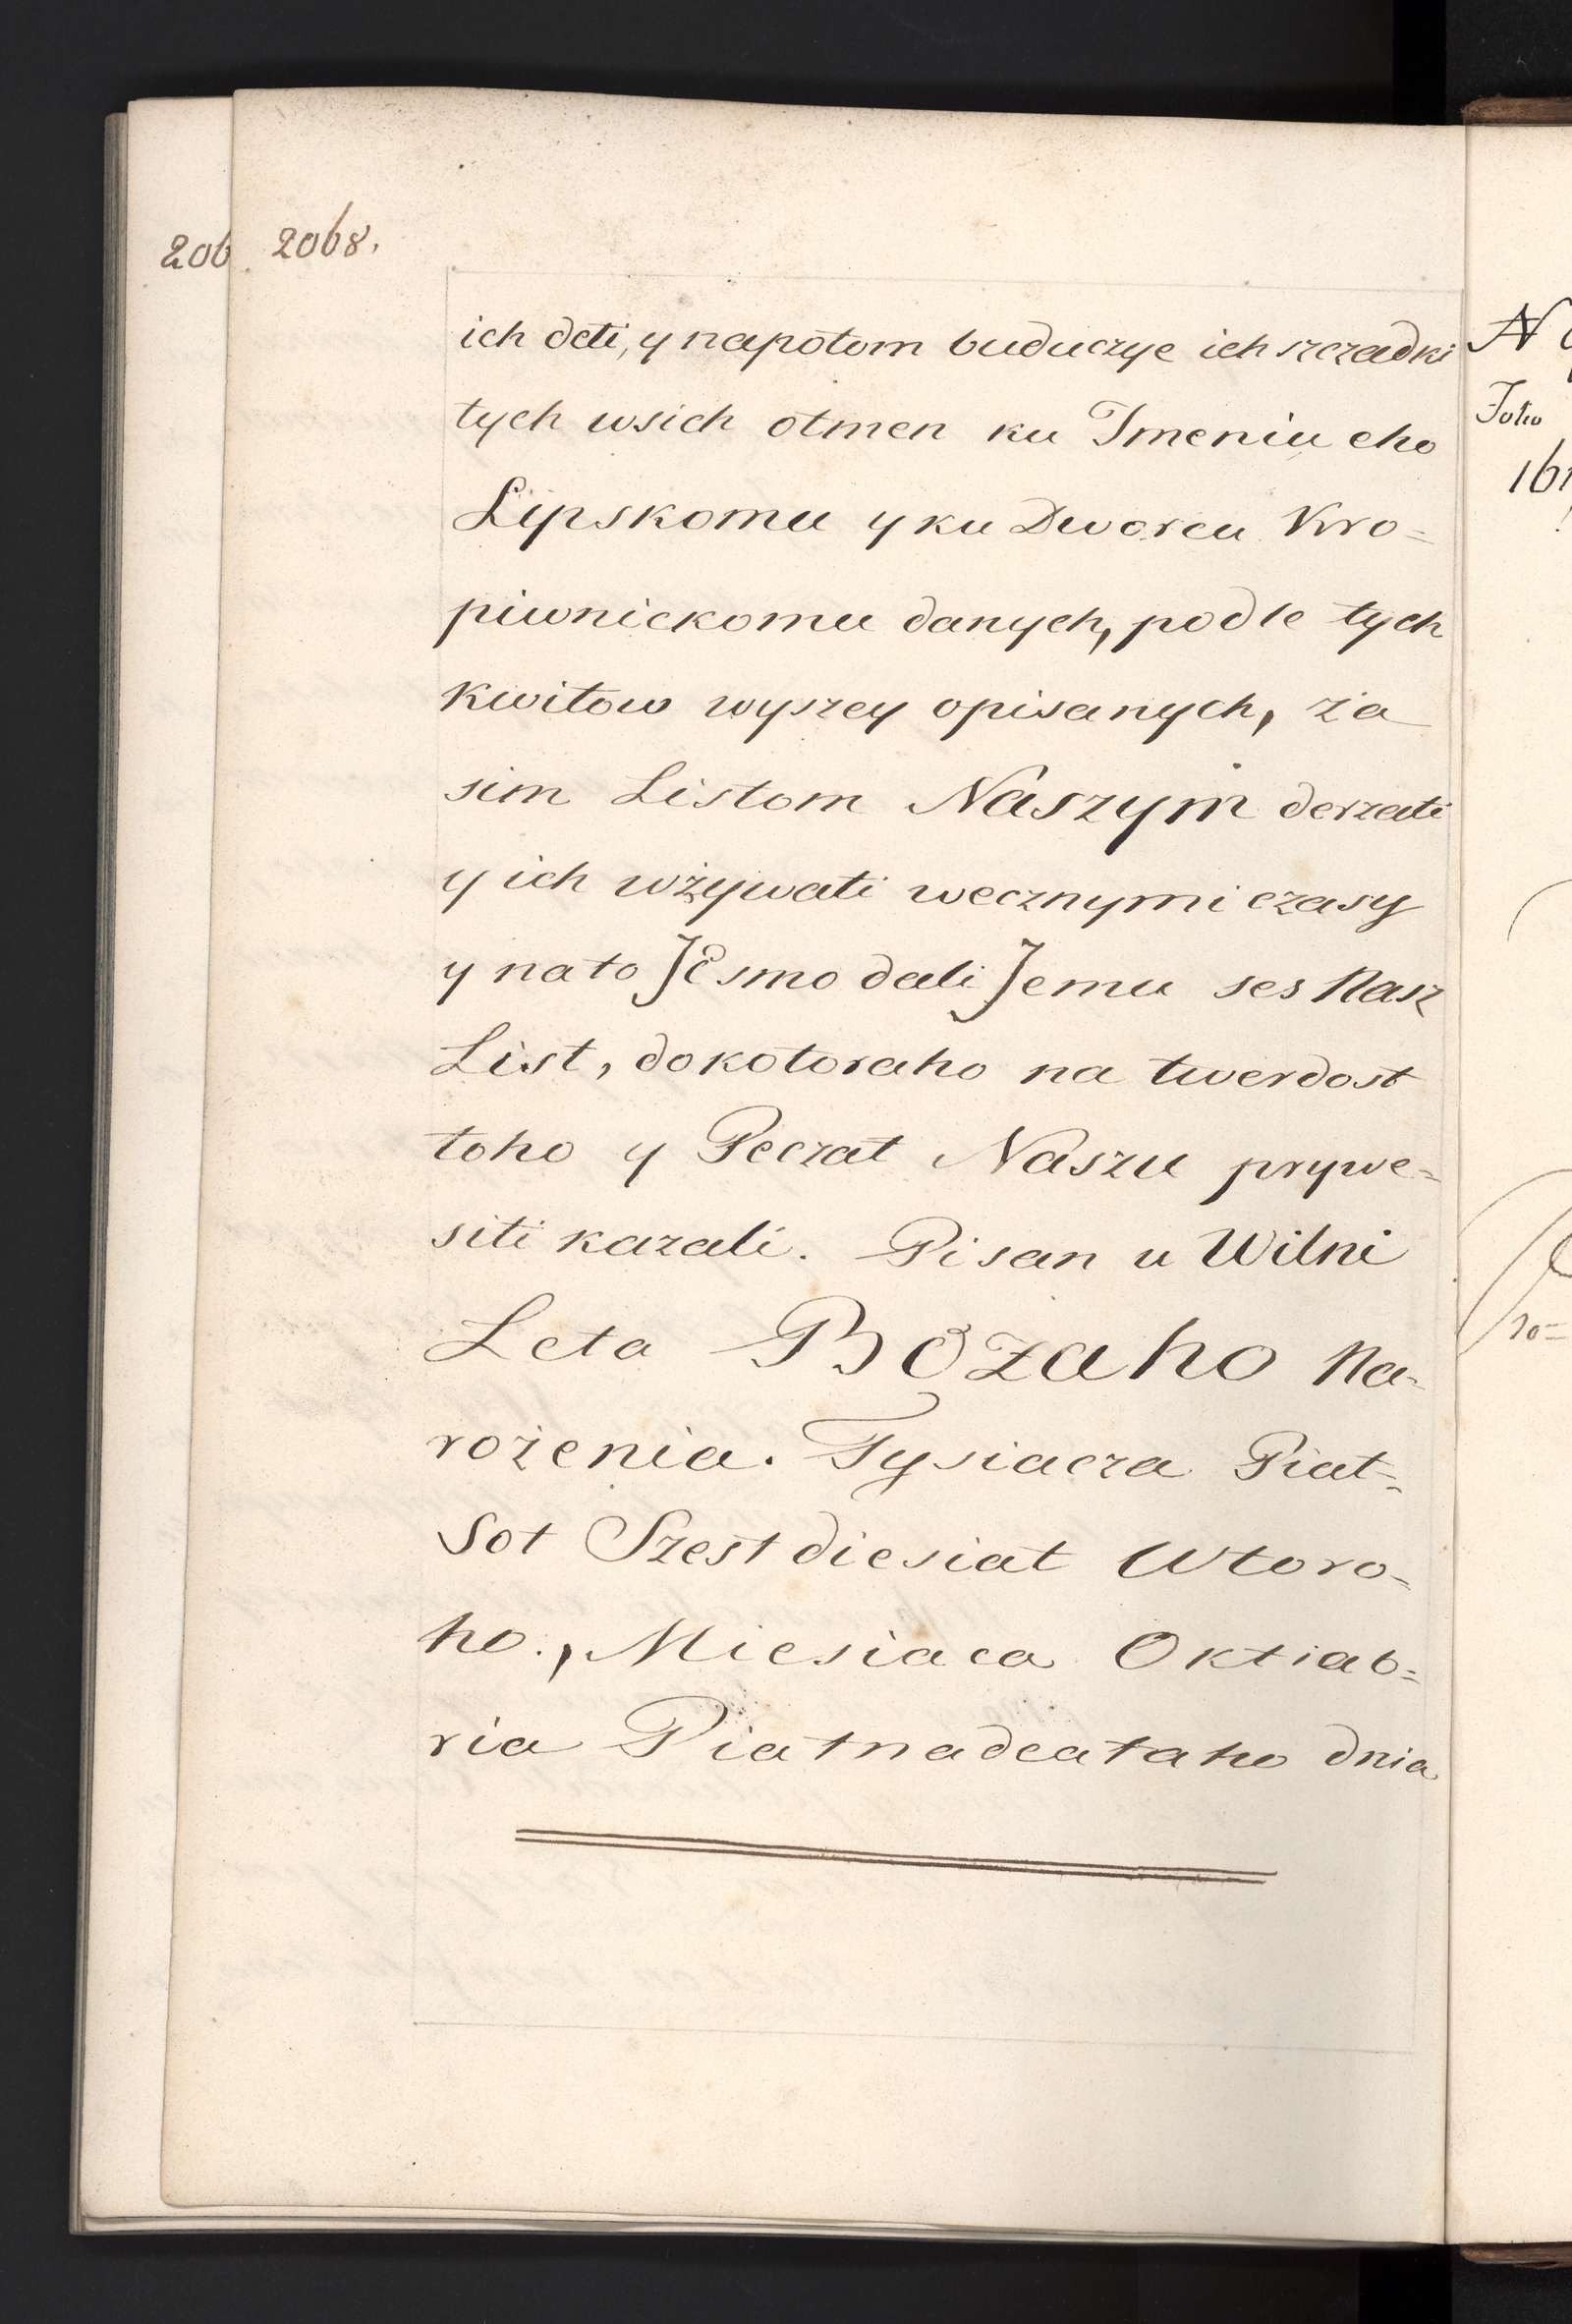 206
2068.
ich deti, y napotom buduczye ich szczadki
tych wsich otmen ku Imeniu eho
Lipskomu y ku Dworcu Kro=
piwnickomu danych, podle tych
kwitow wyszey opisanych, za
sim Listom Naszym derzati
y ich wżywati wecznymi czasy
y na to JEsmo dali Jemu ses Nasz
List, do kotoraho na twerdost
toho y Peczat Naszu prywe=
siti kazali. Pisan u Wilni
Leta BOzaho Na=
rożenia. Tysiacza Piat=
Sot Szest diesiat Wtoro=
ho., Miesiaca Oktiab=
ria Piatnadcataho dnia